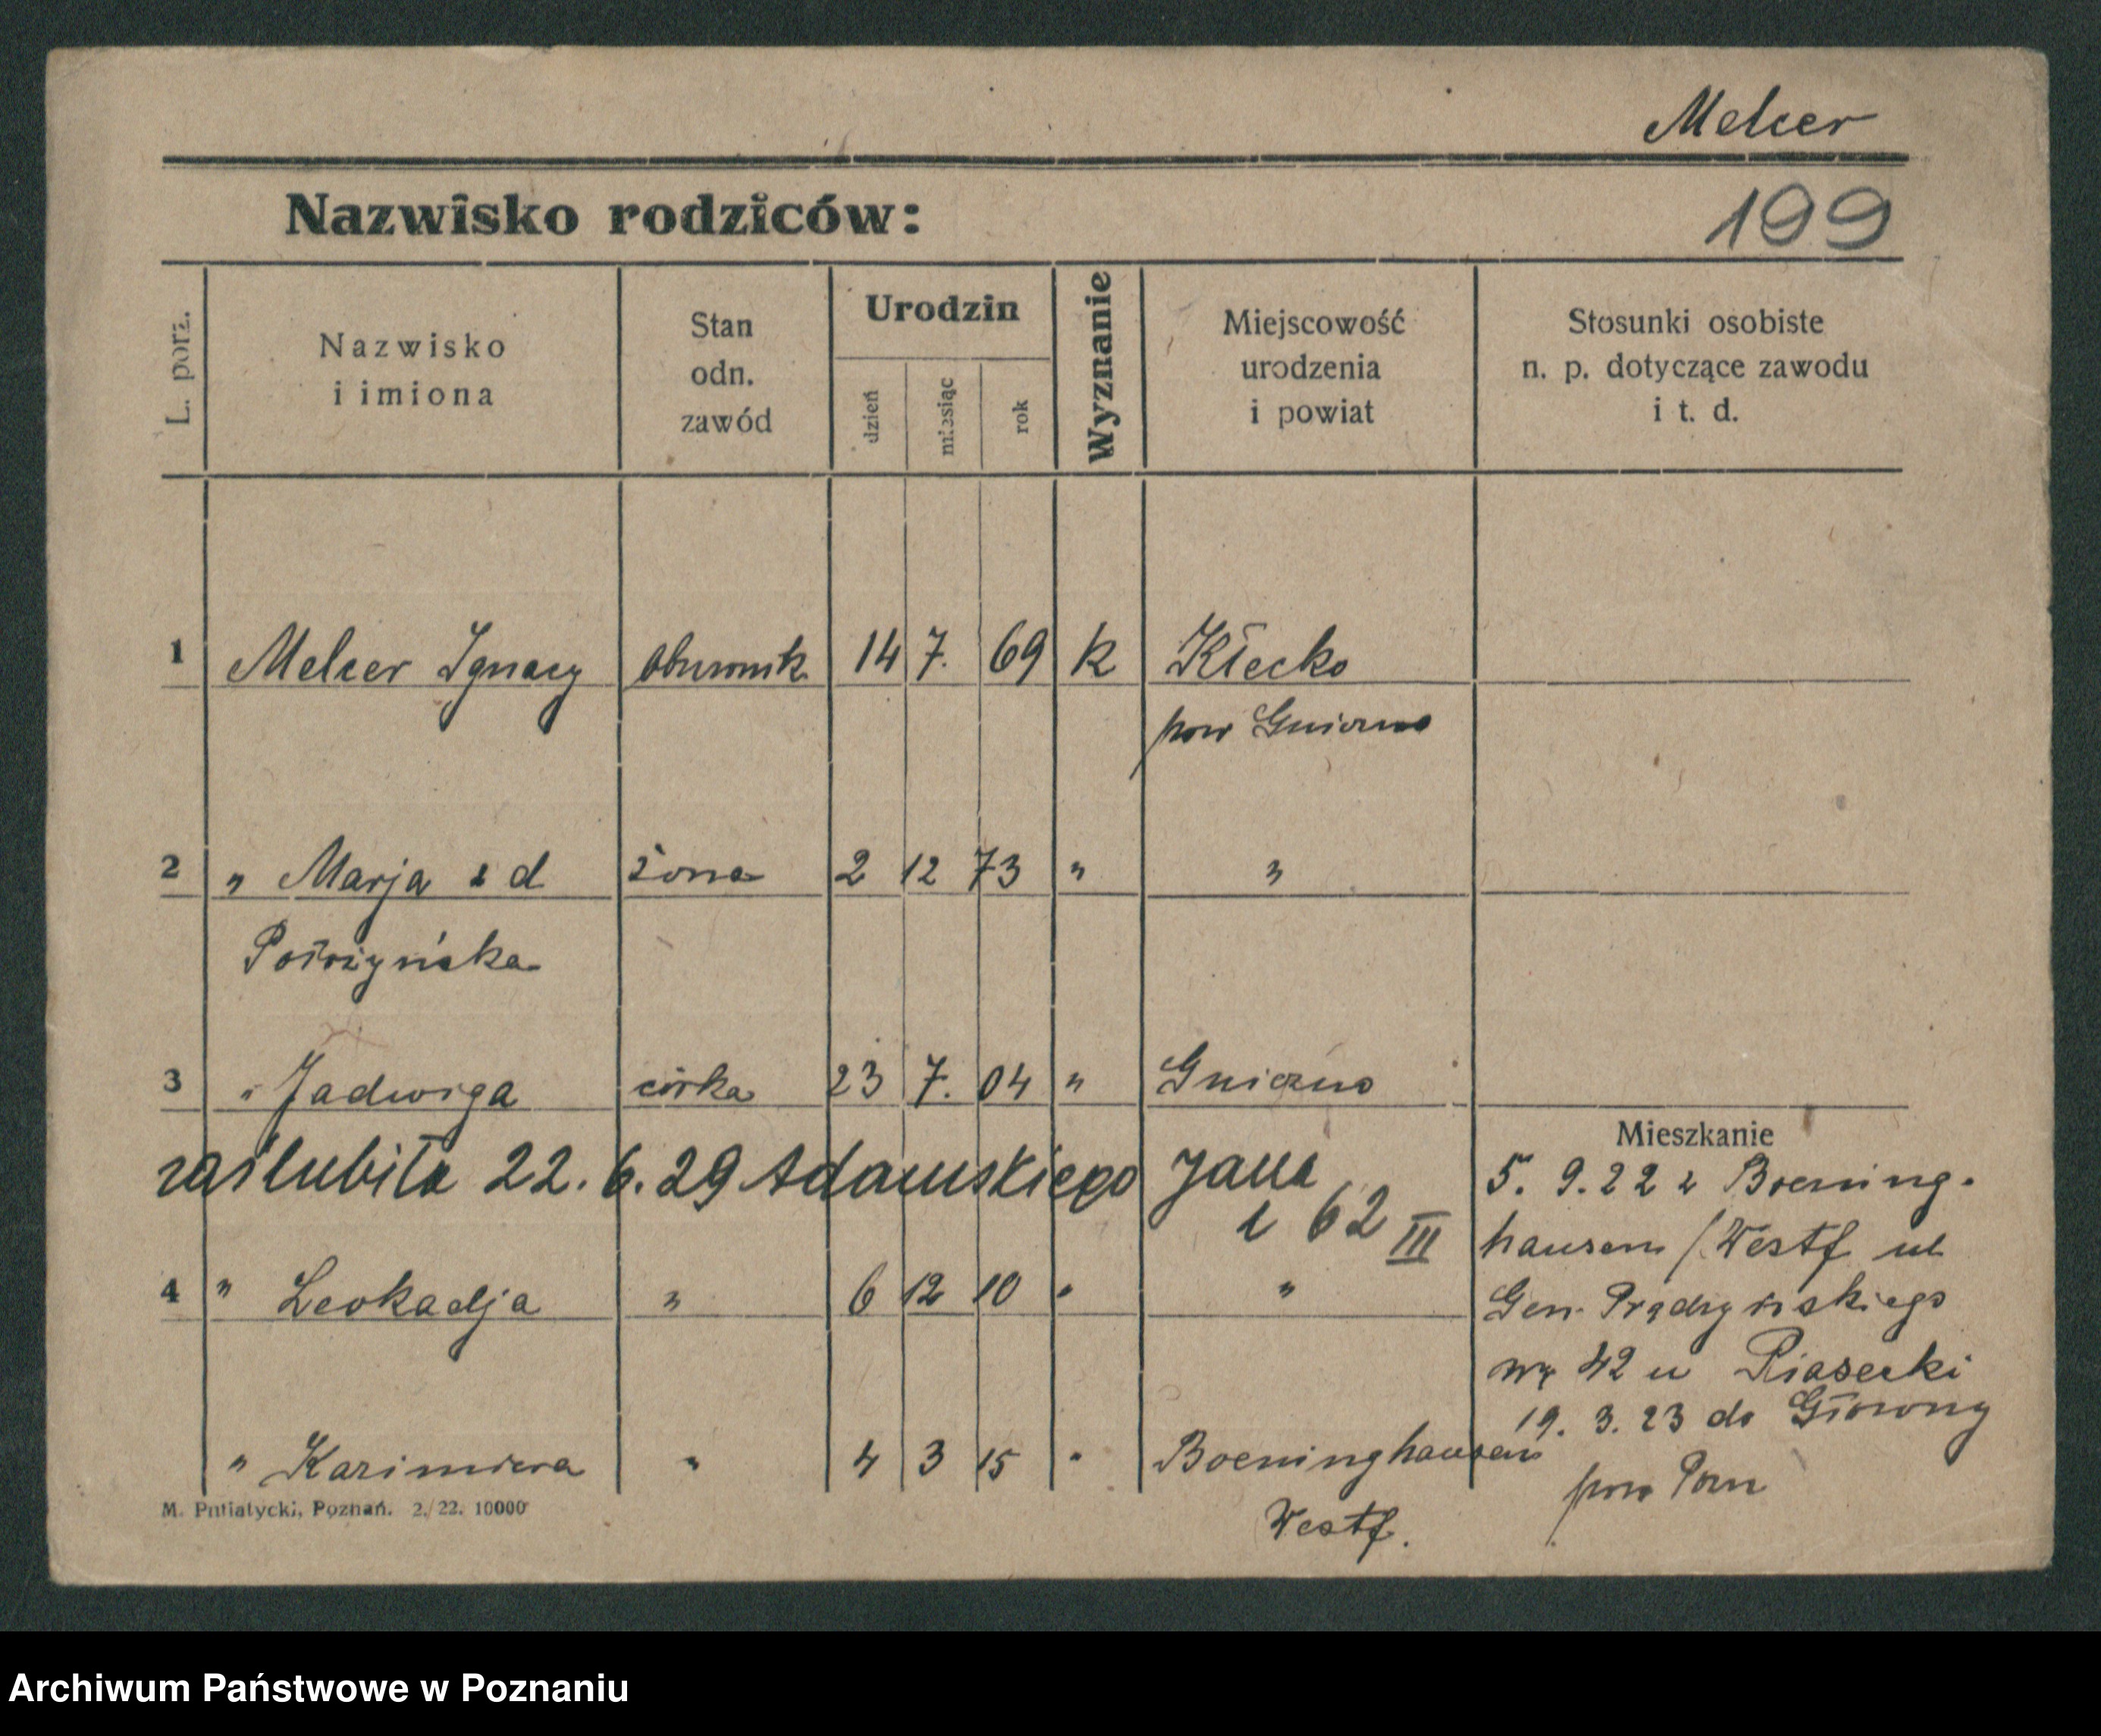 Melcer
Nazwisko rodziców:
199
L. porz.
Nazwisko
i imiona
Stan
odn.
zawód
Urodzin
dzień
miesiąc
rok
Wyznanie
Miejscowość
urodzenia
i powiat
Stosunki osobiste
n. p. dotyczące zawodu
i t. d.
1 Melcer Ignacy 14 7. 69 k Kłecko
pow Gniezno
2 " Marja z d żona 2 12 73 " "
3 " Jadwiga córka 23 7. 04 " Gniezno
zaślubiła 22. 6. 29 Adamskiego Jana
z 62 III
4 " Leokadja " 6 12 10 " "
" Kazimiera " 4 3 15 " Boeninghausen
Westf.
Mieszkanie
5. 9. 22 z Boening-
hausen / Westf ul
Gen. Prądzyńskiego
nr 42 u Piasecki
19. 3. 23 do Głowny
pow Pozn
M. Putiatycki, Poznań. 2./22. 10000
Archiwum Państwowe w Poznaniu